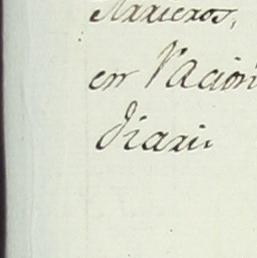 Arrieros,
en Racion
diari